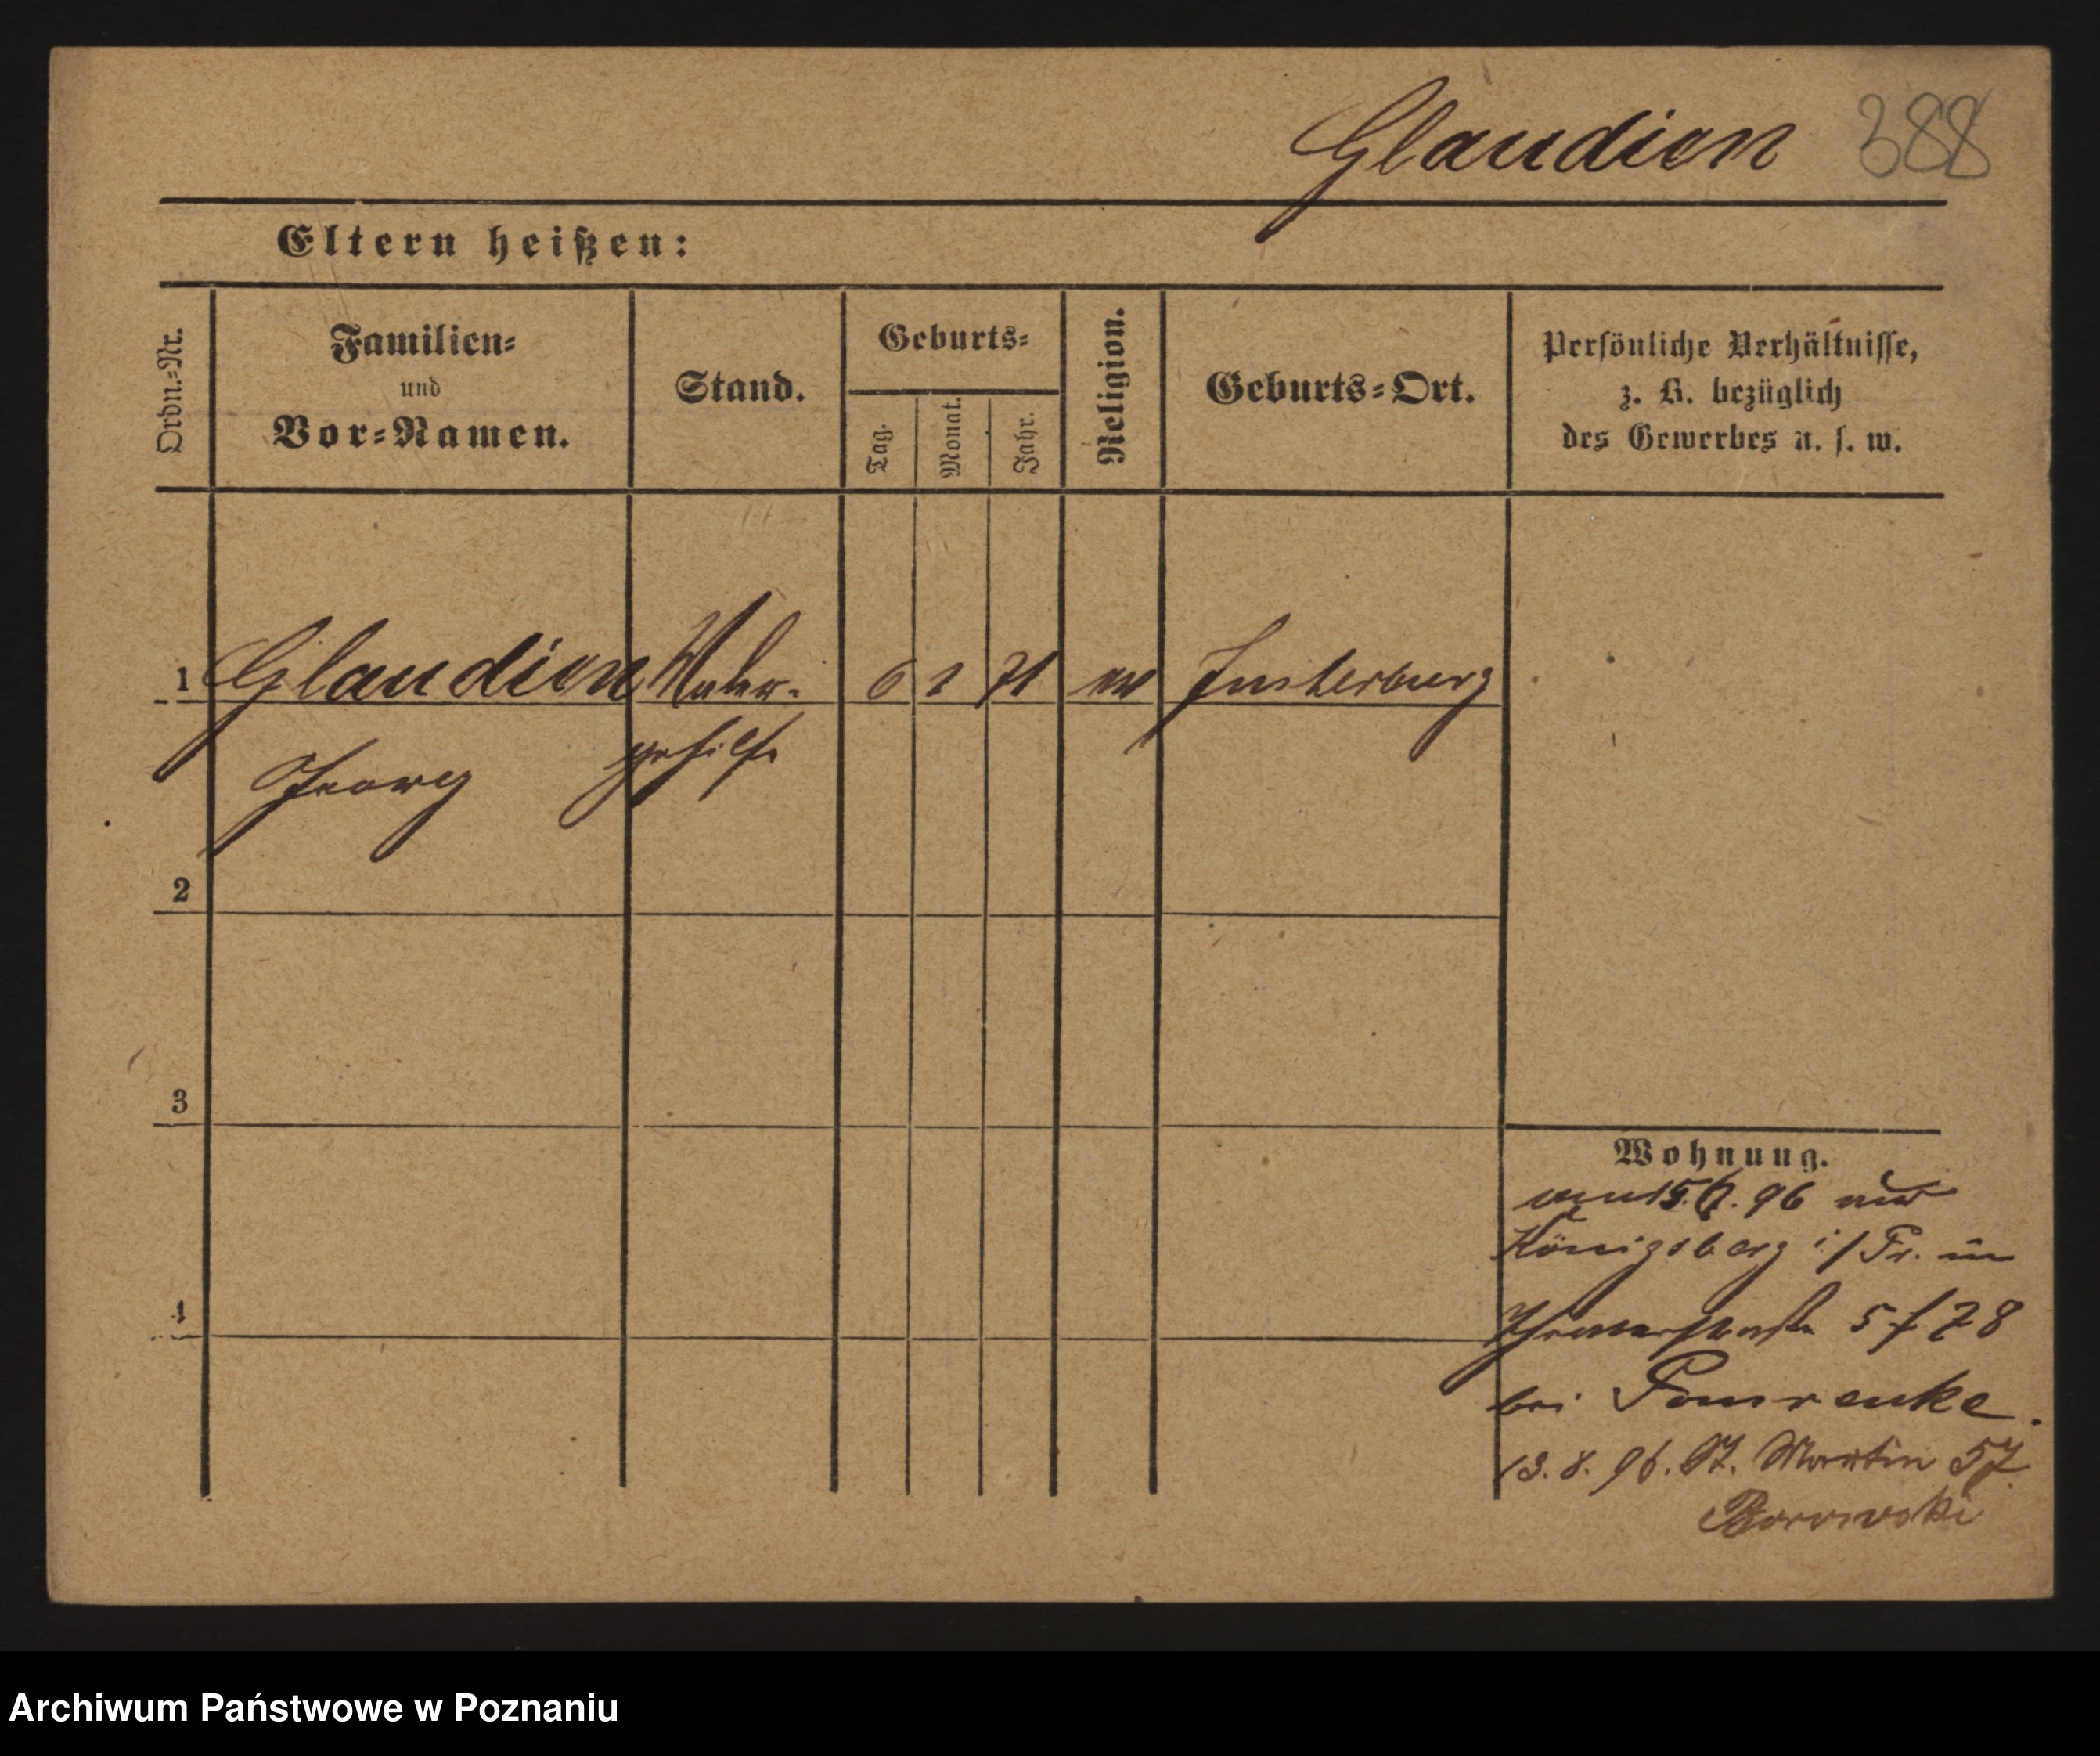 Glaudien 388
Eltern heißen:
Ordn.=Nr.
Familien=
und
Vor=Namen.
Stand.
Geburts=
Tag.
Monat.
Jahr.
Religion.
Geburts=Ort.
Persönliche Verhältnisse,
z. B. bezüglich
des Gewerbes u. s. w.
1 Glaudien Maler- 6 2 71 ev Insterburg
Georg gehilfe
2
3
4
Wohnung.
96 aus
Königsberg i/Pr. in
5 / 78
bei Pomrenke.
13.8.96. St. Martin 57
Borowski
Archiwum Państwowe w Poznaniu